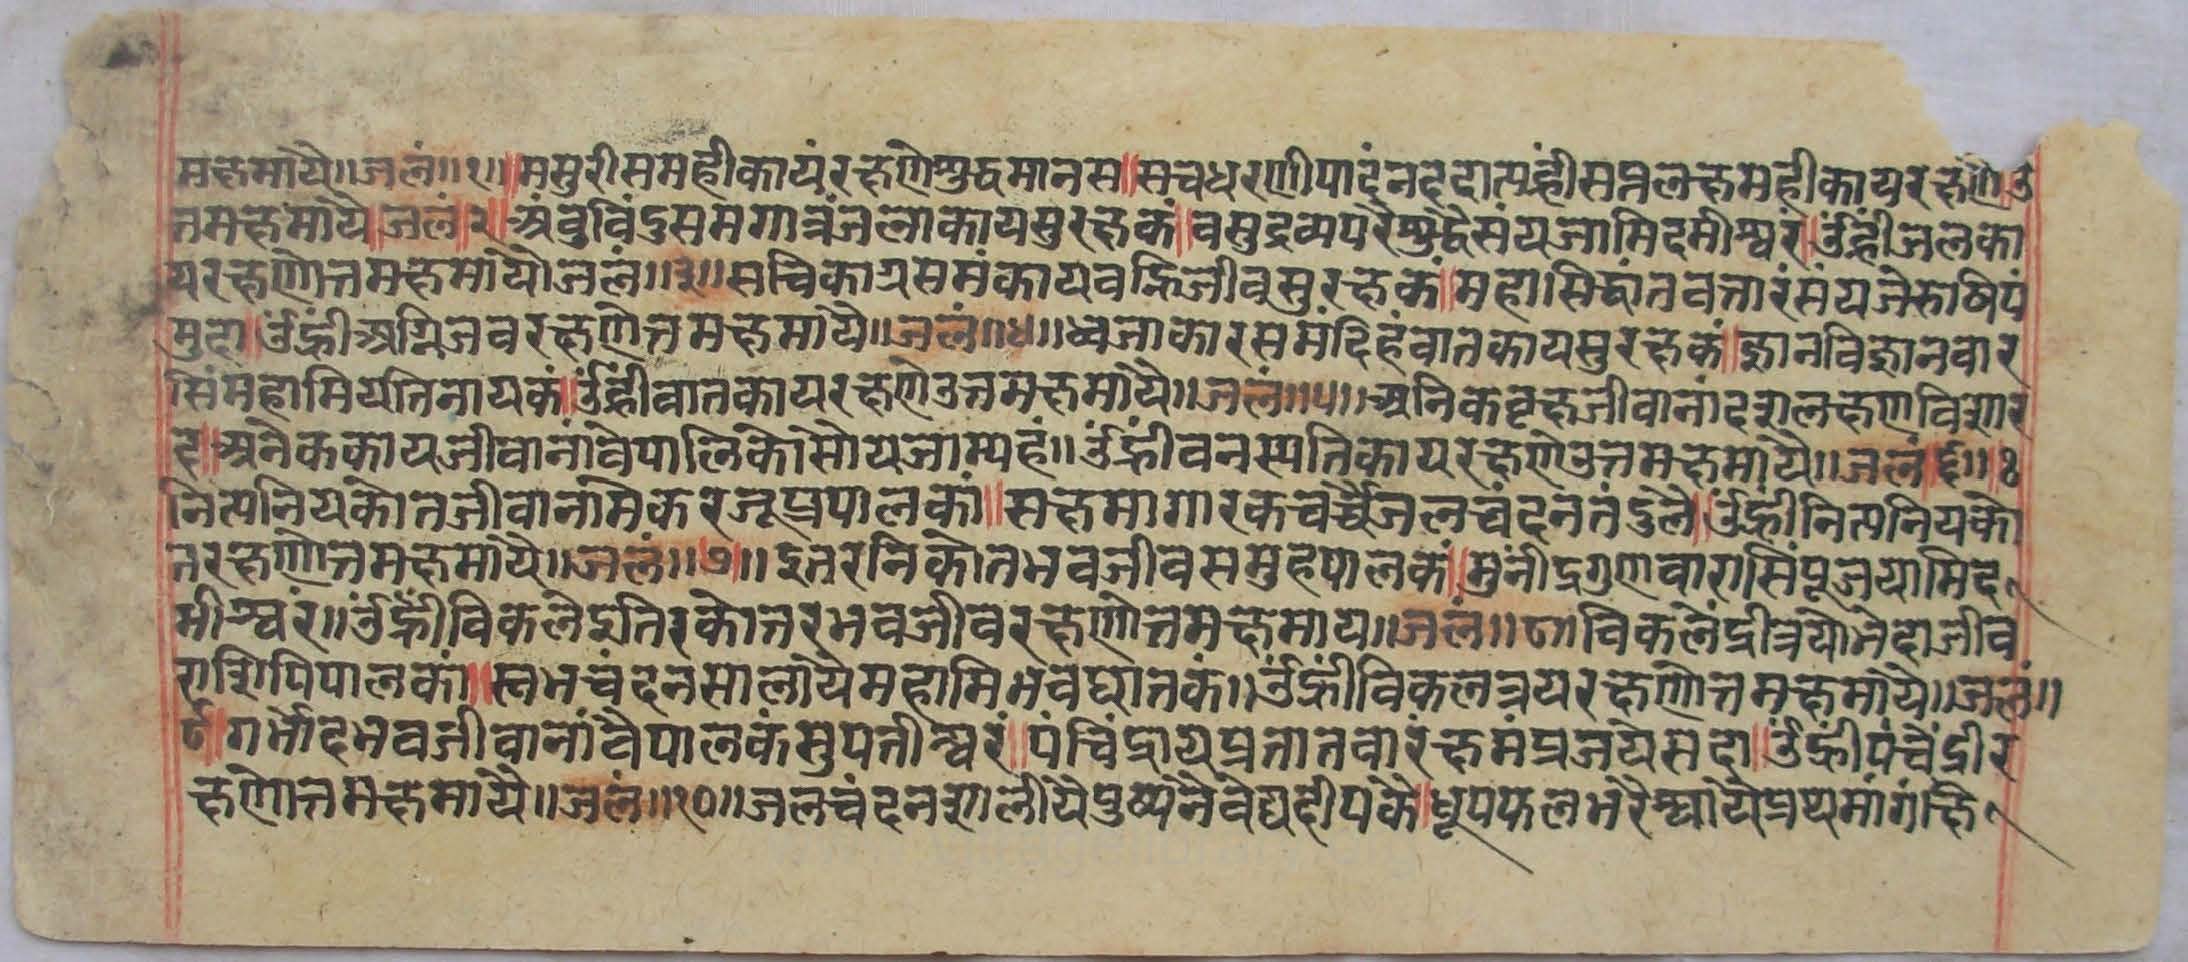 मक्षमायै॥जलं॥१॥मसुरीसमहीकायंरक्षणेशुद्धमानस॥सचधरणीपादंनददात्पह्रीसप्तलक्षमहीकायरक्षणेउ
तमक्षमायै॥जलं॥२॥अंबुविंदुसमगात्रंजलाकायसुरक्षकं॥वसुद्रव्यपरैशुद्धैसंयजामिदमीश्वरं॥उंह्रींजलका
यरक्षणोत्तमक्षमायै॥जलं॥३॥सचिकाग्रसमंकायवह्निजीवसुरक्षकं॥महासिद्धांतवत्तारंसंयजे
मुदा॥उंह्रींअग्निजवरक्षणेत्तमक्षमायै॥जलं॥४॥ध्वजाकारसमंदिहंवातकायसुरक्षकं॥ज्ञानविज्ञानवार
सिंमहामियतिनायकं॥उंह्रींवातकायरक्षणेउत्तमक्षमायै॥जलं॥५॥अनिकवृक्षजीवानांदशलक्षणविशार
द॥अनेककायजीवानांवेपालिकोसोयजाम्यहं॥उंह्रींवनस्पतिकायरक्षणेउत्तमक्षमायै॥जलं॥६॥
नित्यनियकोतजीवानांमेकरजूप्रपालकां॥सक्षमागारकचर्चैजलचंदनतंडुलै॥उंह्रींनित्यनियको
तरक्षणोत्तमक्षमायै॥जलं॥७॥इतरनिकोतभवजीवसमुहपालकं॥मुंनींद्रगुणवारासिंपूजयामिद
मीश्वरं॥उंह्रींविकलेद्रतिरकोत्तरभवजीवरक्षणोत्तमक्षमाय॥जलं॥८॥विकलेंद्रीत्रयोभेदाजीव
राशिपिपालकां॥स्तभचंदनसालायैमहामिभवघातकं॥उंह्रींविकलत्रयरक्षणोत्तमक्षमायै॥जलं॥
९॥गर्भोदभवजीवानांवैपालकंसुपतीश्वरं॥पंचिंद्रायप्रतातवारंक्षमंप्रजयेसदा॥उंह्रींपंचेंद्रीर
क्षणोत्तमक्षमायै॥जलं॥१०॥जलचंदनशालीयैपुष्पनैवेद्यदीपकै॥धूपफलभरैश्चायैप्रथमांगंह्नि